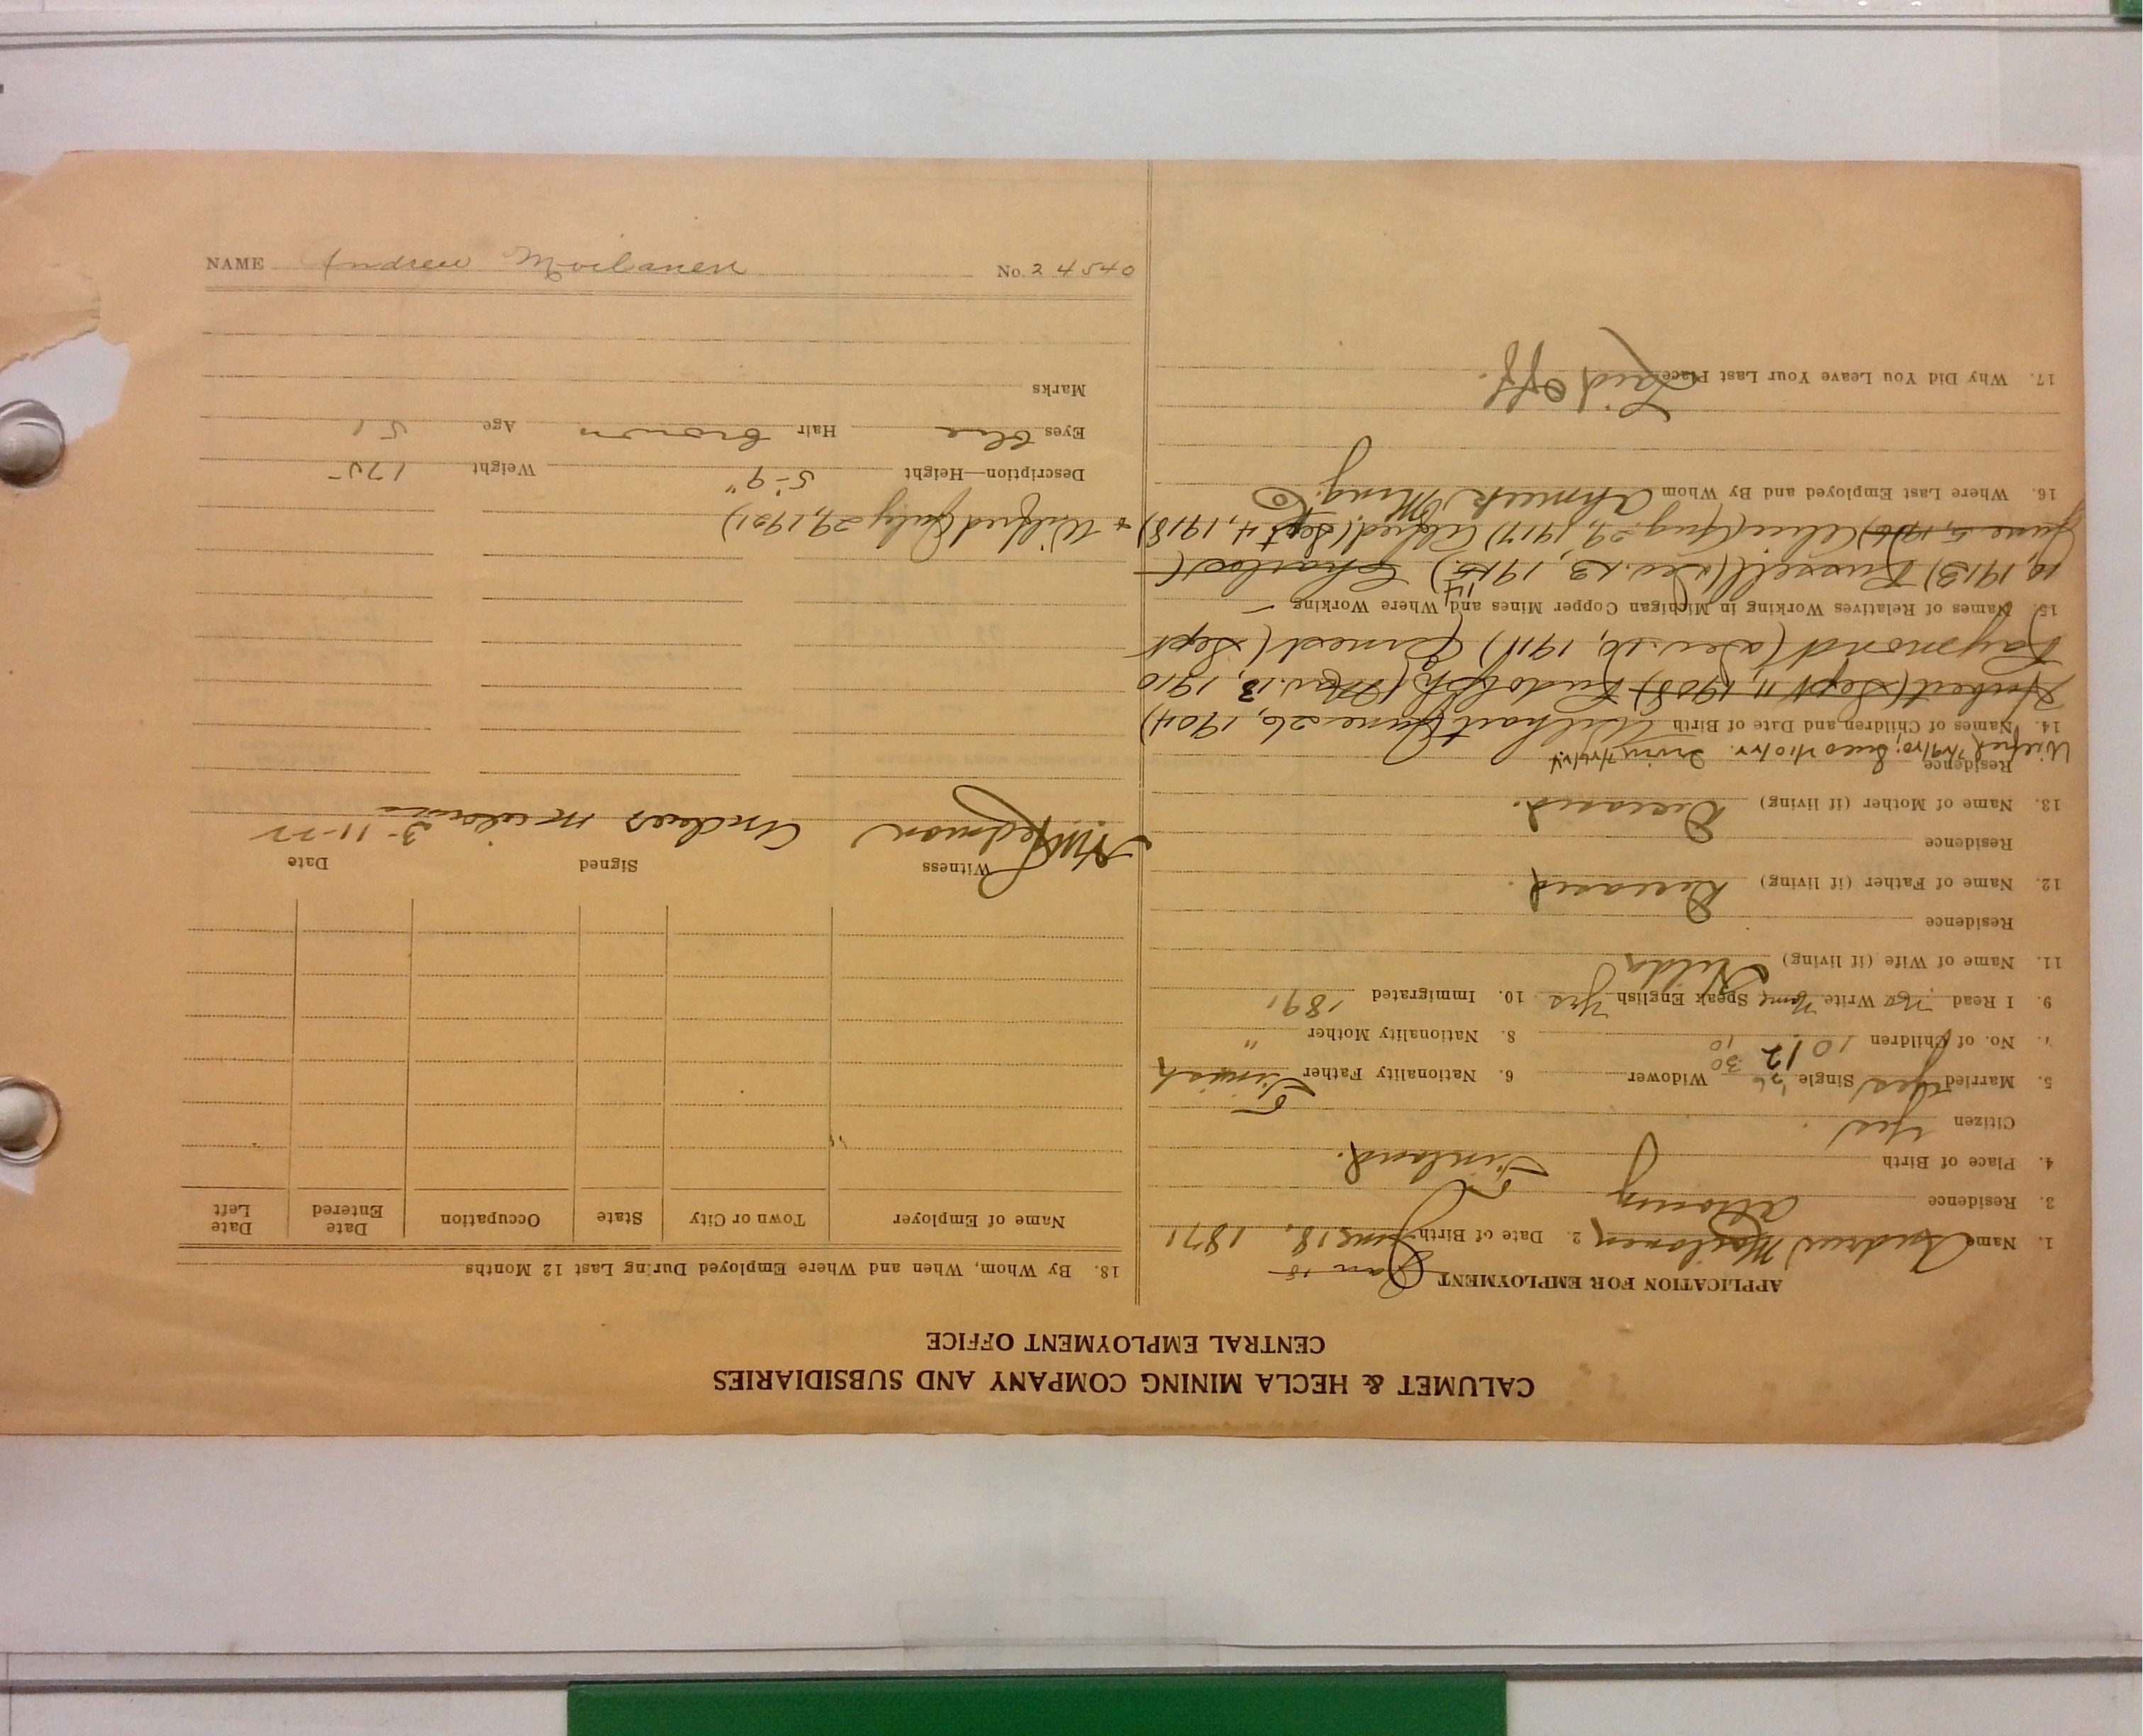 CALUMET & HECLA MINING COMPANY AND SUBSIDIARIES
CENTRAL EMPLOYMENT OFFICE
APPLICATION FOR EMPLOYMENT Jan 18
1. Name Andrew Moilanen 2. Date of Birth June 18, 1871
3. Residence Allouez
4. Place of Birth Finland.
Citizen Yes
5. Married Yes Single Widower 6. Nationality Father Finnish
7. No. of Children 10 12 8. Nationality Mother "
9. I Read no Write Name Speak English Yes 10. Immigrated 1891
11. Name of Wife (if living) Hilda
Residence
12. Name of Father (if living) Deceased.
Residence
13. Name of Mother (if living) Deceased.
Residence
Wilfred 7/29/20; 7/10/22. Irving 7/26/24
14. Names of Children and Date of Birth (June 26, 1904)
Hubert (Sept 11, 1908) Rudolph (Mar. 13, 1910
Raymond (Dec. 16, 1911) Ernest (Sept
15. Names of Relatives Working in Michigan Copper Mines and Where Working —
10, 1913) Russell (Dec. 13, 1915) Charles (
June 5, 1916) (Aug. 29, 1917) Alfred (Sept 4, 1918)
+ Wilfred (July 29, 1921)
16. Where Last Employed and By Whom Ahmeek Mng. Co
17. Why Did You Leave Your Last Place Laid Off.
18. By Whom, When and Where Employed During Last 12 Months
Name of Employer Town or City State Occupation Date Entered Date Left
Witness Signed Date
Redmon Andrew 3-11-22
Description—Height 5-9" Weight 175
Eyes Blue Hair Brown Age 51
Marks
NAME Andrew Moilanen No. 24540